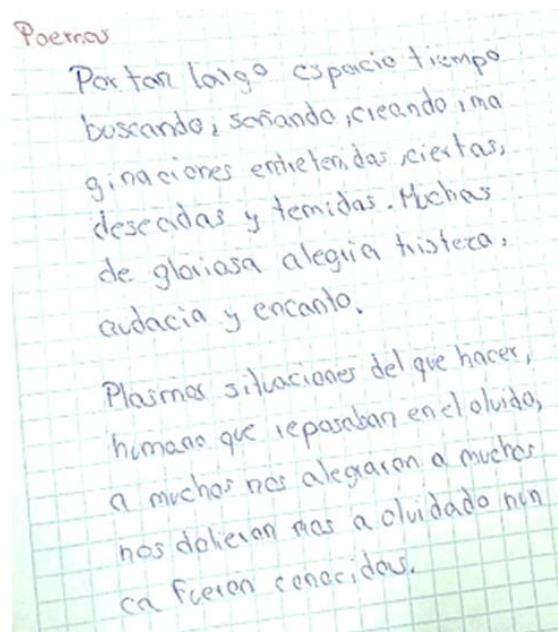 Poemas
Por tan largo espacio tiempo
buscando, soñando, creando ima
ginaciones entretenidas, ciertas,
deseadas y temidas. Muchas
de gloriosa alegria tristeza,
audacia y encanto.
Plasmas situaciones del que hacer,
humano que reposaban en el olvido,
a muchos nos alegraron a muchos
nos dolieron mas a olvidado nun
ca fueron conocidas.